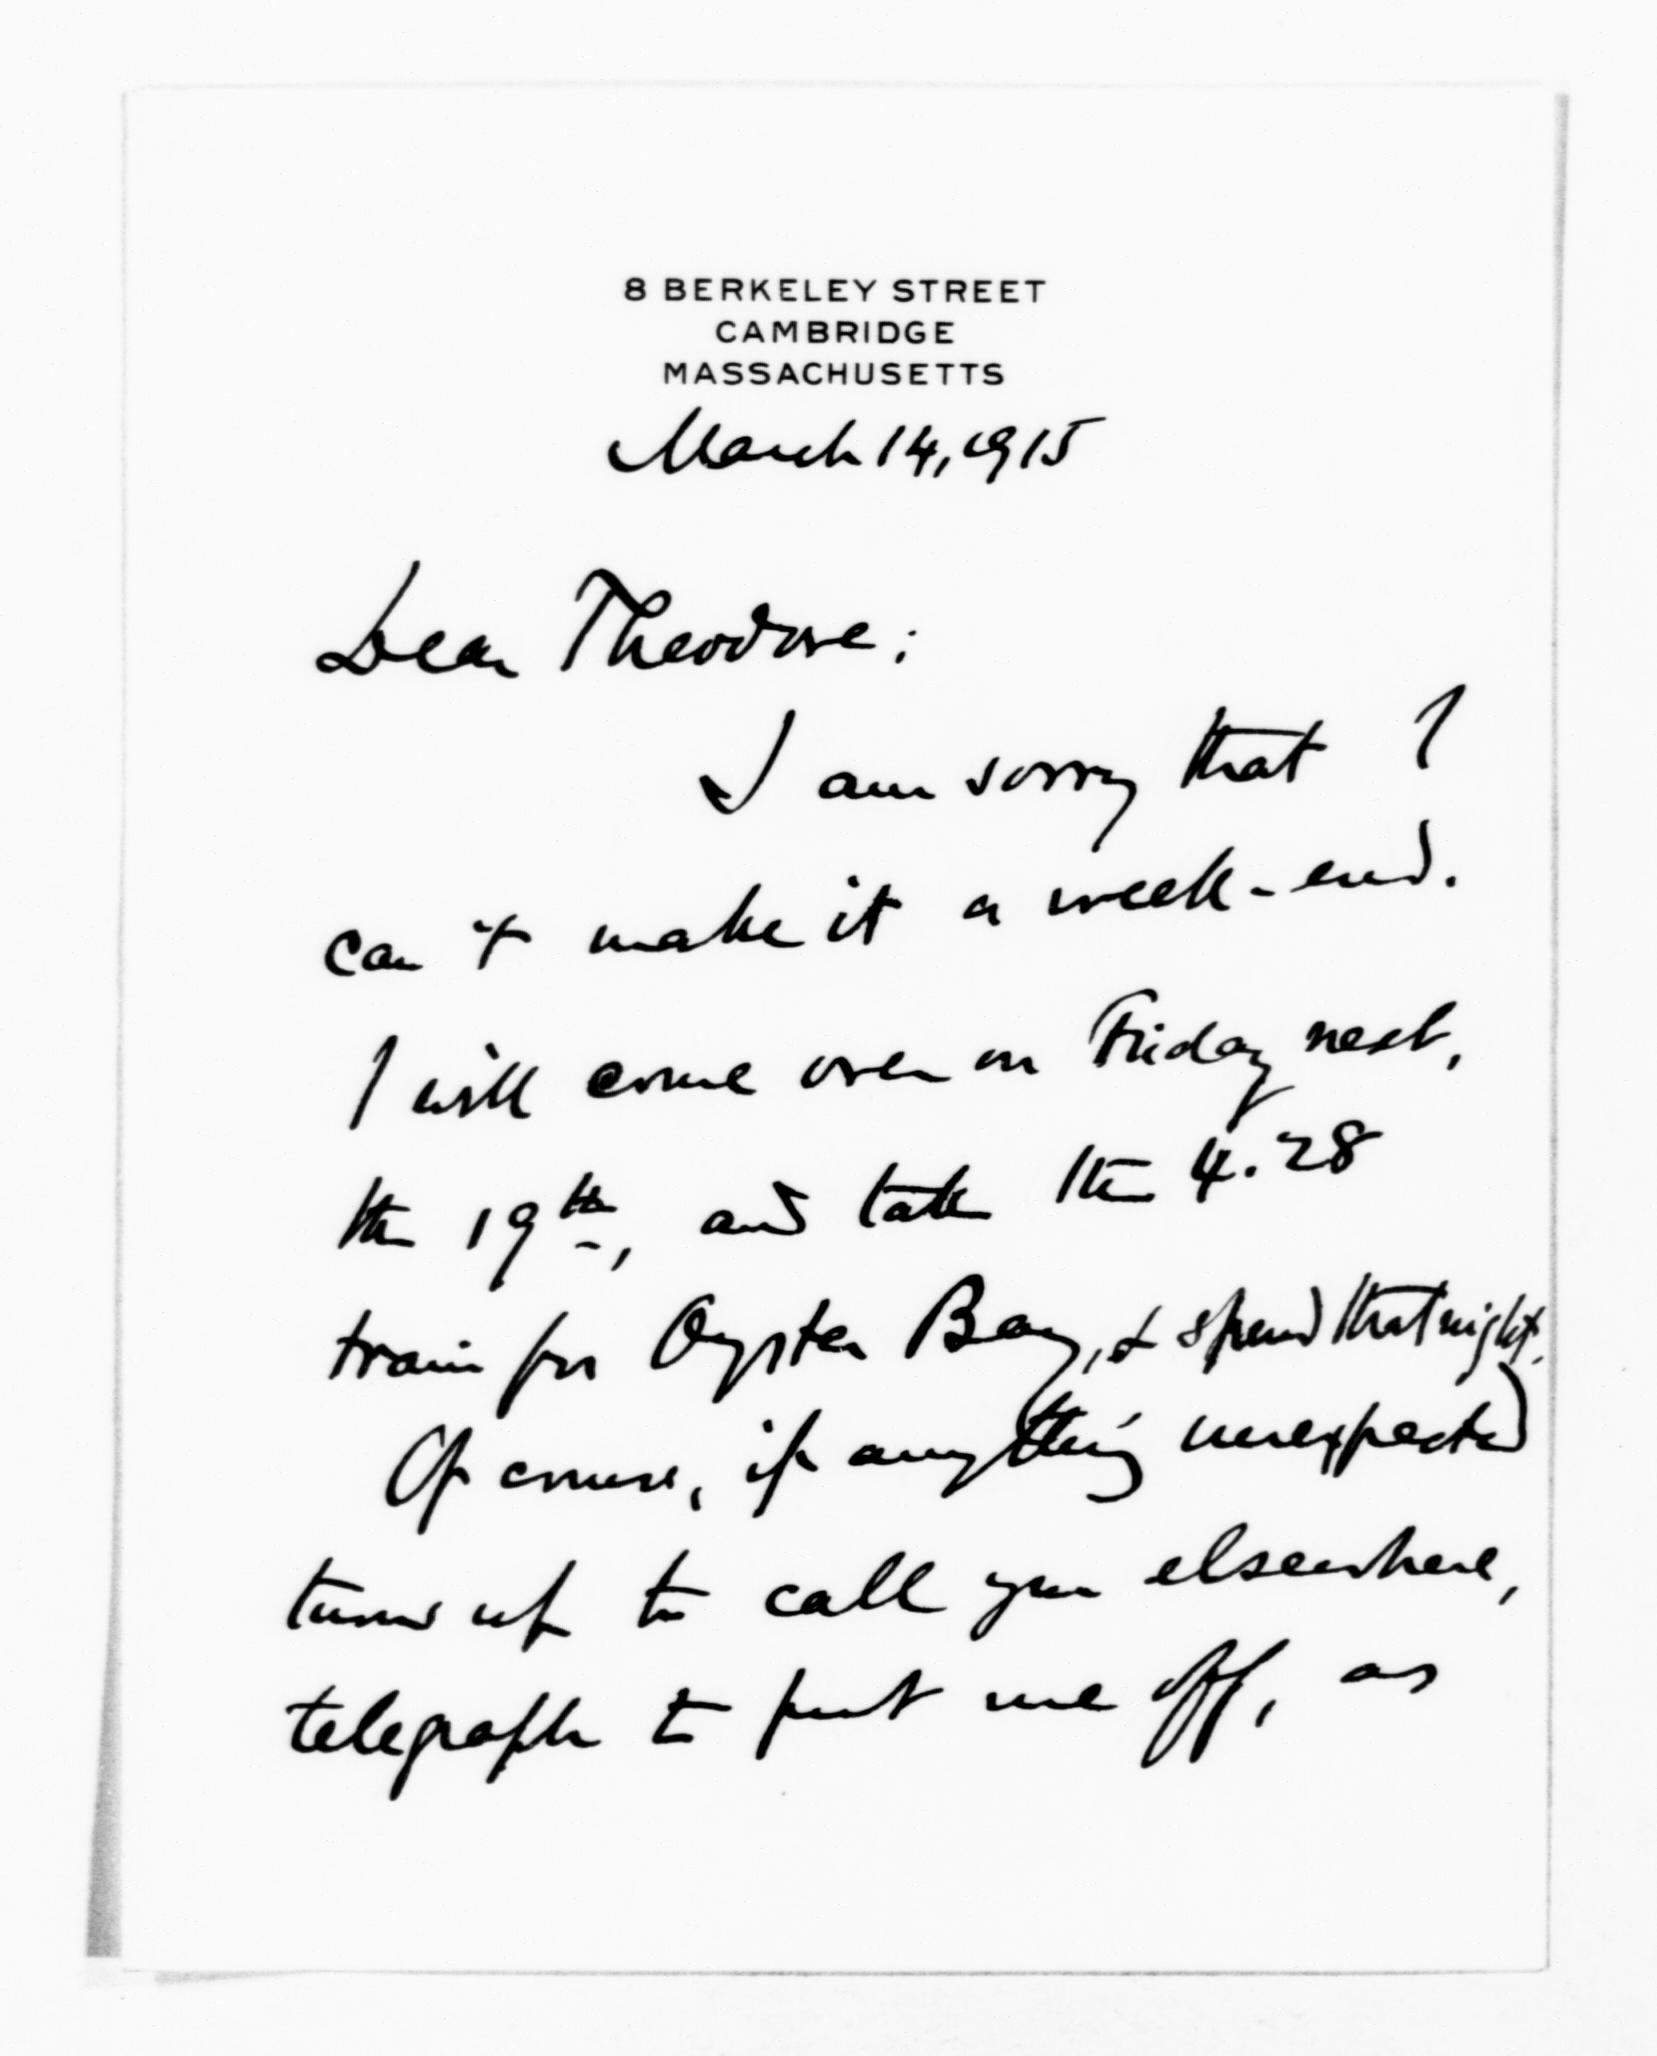 8 BERKELEY STREET
CAMBRIDGE
MASSACHUSETTS
March 14, 1915
Dear Theodore:
I am sorry that I
can't make it a week-end.
I will come over on Friday next,
the 19th, and take the 4.28
train for Oyster Bay, & spend that night.
Of course, if anything unexpected
turns up to call you elsewhere,
telegraph to put me off, as